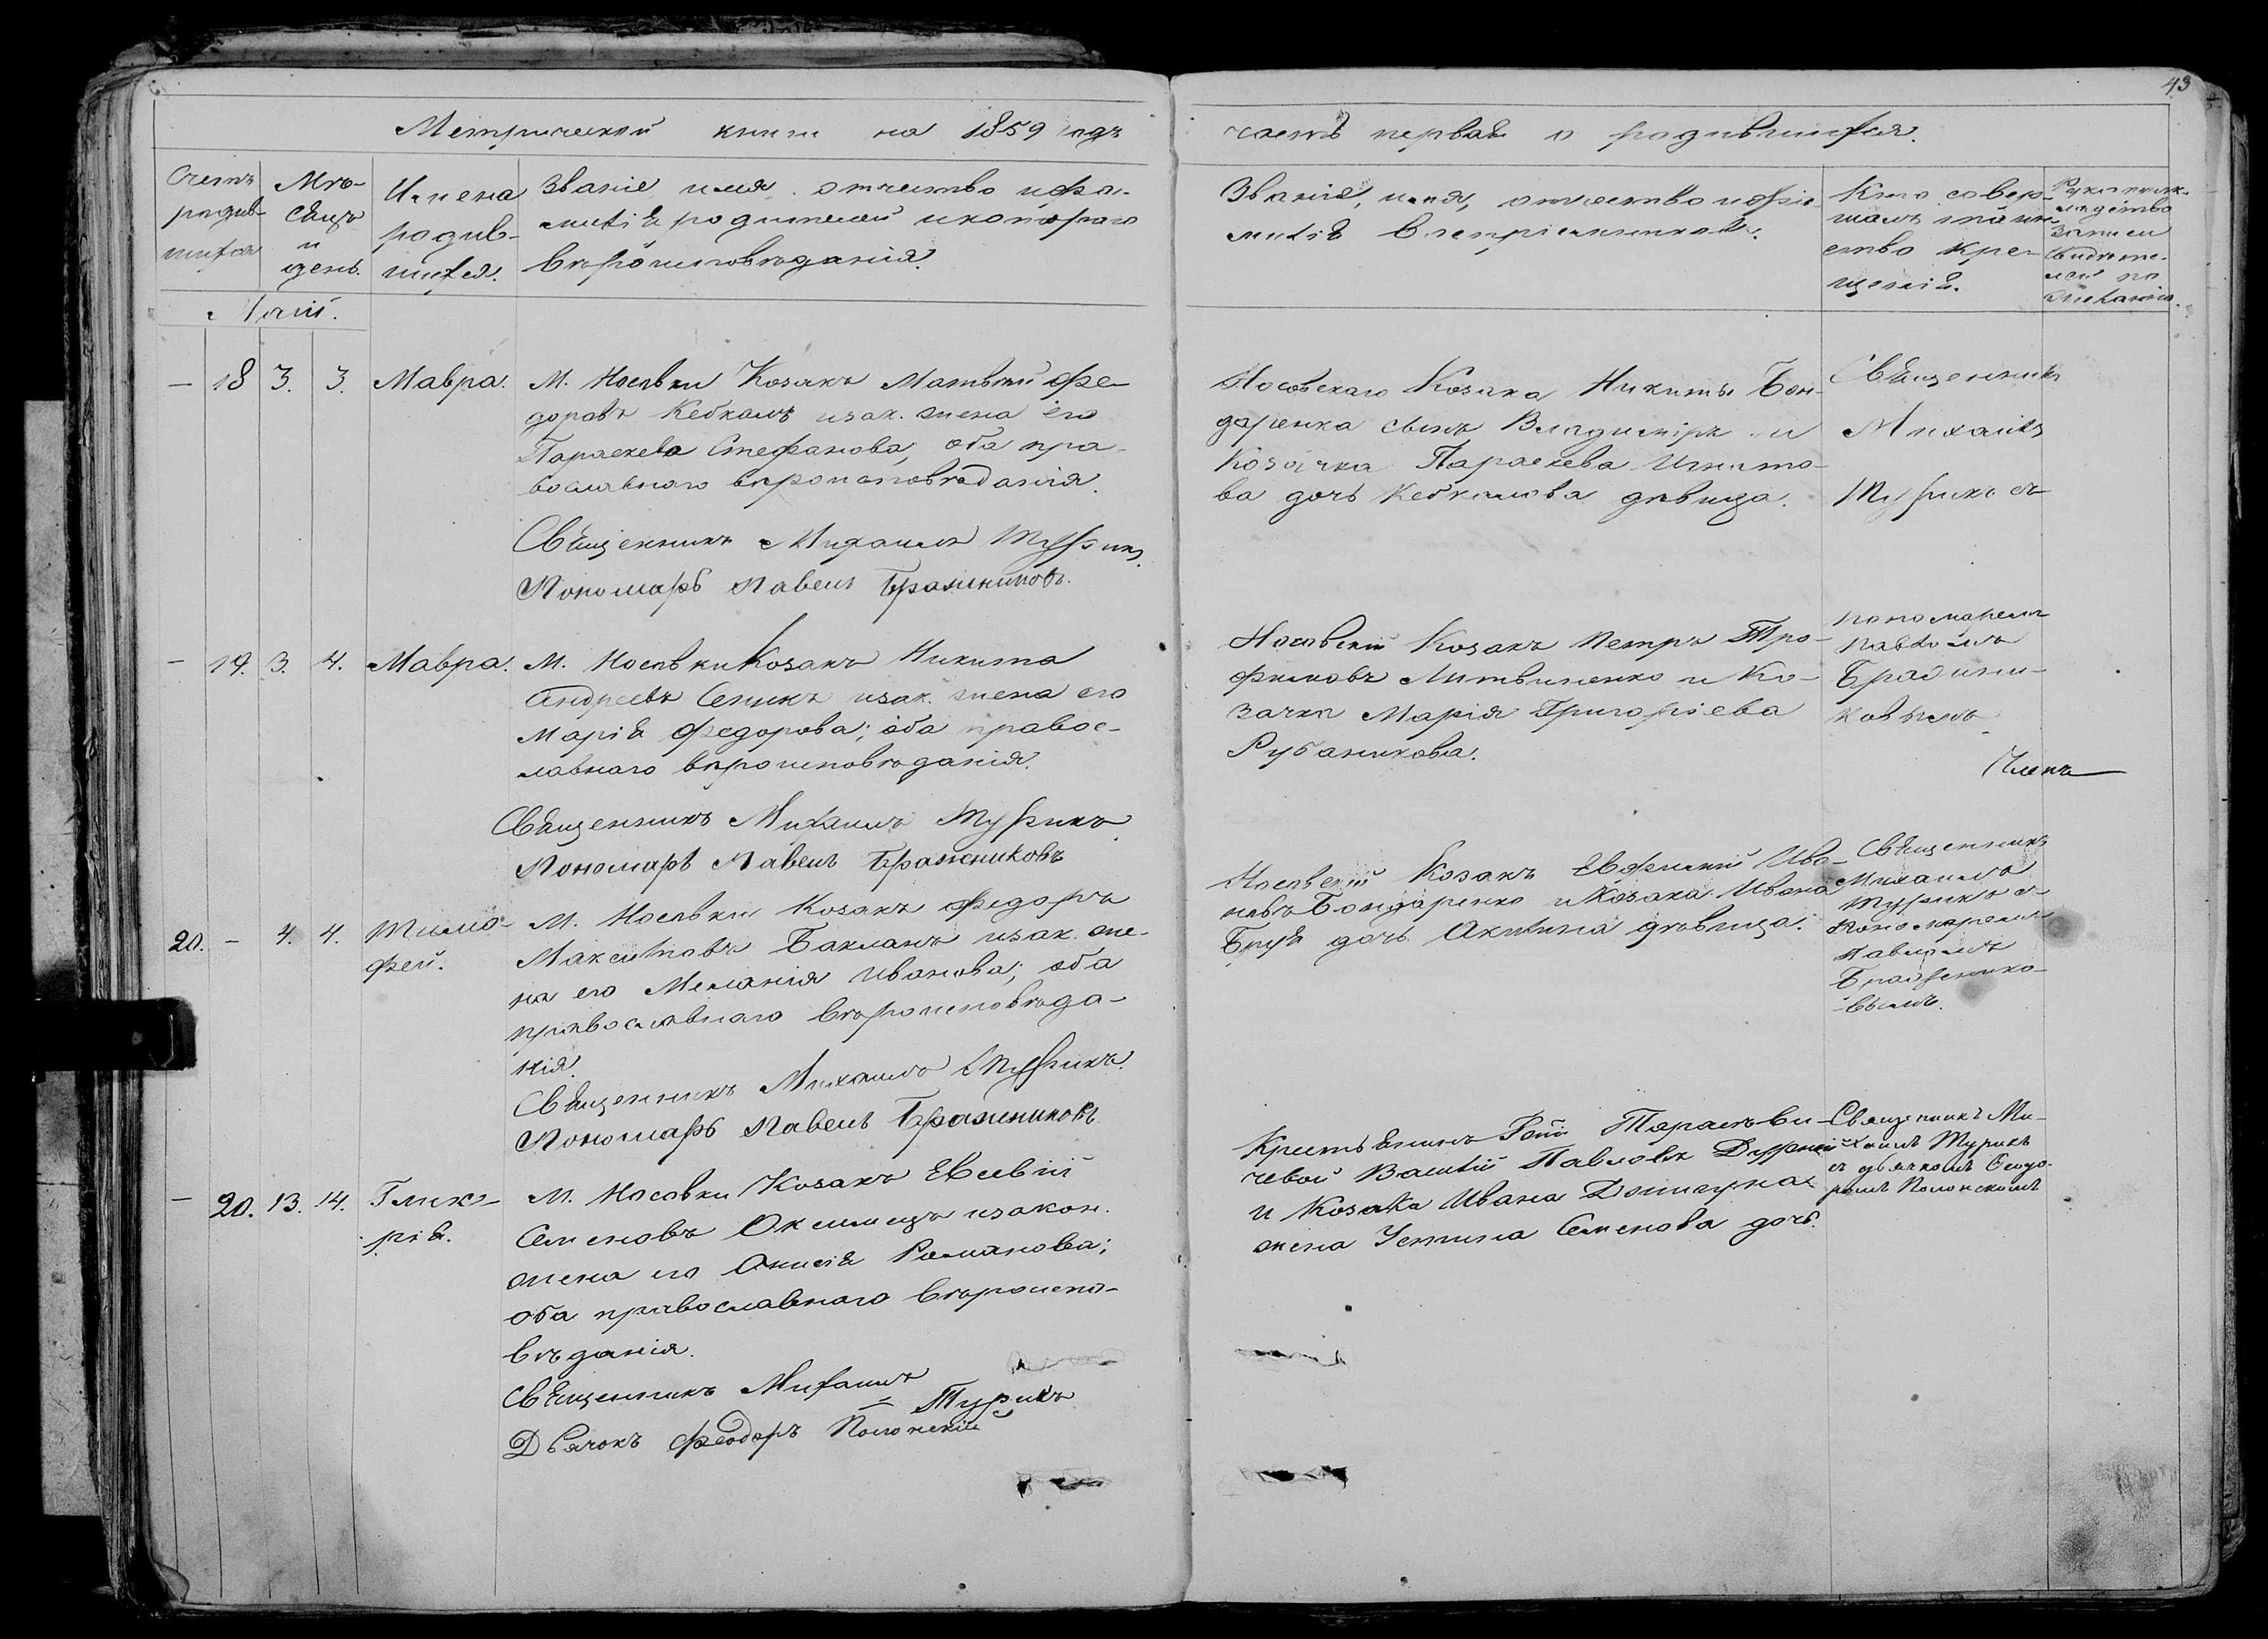 43
Метрической книги на 1859 годъ
часть первая о родившихся.
Счетъ родив- шихся
Мѣ- сяцъ и день.
Имена родив- шихся.
Званіе, имя, отчество и фа-
милія родителей и котораго
вѣроисповѣданія.
Званіе, имя, отчество и фа-
милія воспріемниковъ.
Кто совер-
шалъ таин-
ство кре-
щенія.
Рукоприк-
ладство
записи
свидѣте-
лей по
желанію.
Маій.
— 18 3. 3. Мавра.
М. Носовки Козакъ Матвѣй Фе-
доровъ Кебкалъ и зак. жена его
Параскева Стефанова, оба пра-
вославнаго вѣроисповѣданія.
Священникъ Михаилъ Турикъ.
Пономарь Павелъ Бражниковъ.
Носовскаго Козака Никиты Бон-
даренка сынъ Владиміръ и
Козачка Параскева Игнато-
ва дочь Кебкалова дѣвица.
Священникъ
Михаилъ
Турикъ съ
— 19. 3. 4. Мавра.
М. Носовки Козакъ Никита
Андреевъ Сеникъ и зак. жена его
Марія Федорова; оба правос-
лавнаго вѣроисповѣданія.
Священникъ Михаилъ Турикъ
Пономарь Павелъ Бражниковъ
Носовскій Козакъ Петръ Тро-
фимовъ Литвиненко и Ко-
зачка Марія Григоріева
Рубаникова.
пономаремъ
Павломъ
Бражни-
ковымъ
Членъ
20. — 4. 4. Тимо-
фей.
М. Носовки Козакъ Федоръ
Максимовъ Бакланъ и зак. же-
на его Меланія Иванова; оба
православнаго вѣроисповѣда-
нія.
Священникъ Михаилъ Турикъ.
Пономарь Павелъ Бражниковъ
Носовскій Козакъ Евфимій Ива-
новъ Бондаренко и Козака Ивана
дочь Акилина дѣвица.
Священникъ
Михаилъ
Турикъ съ
Пономаремъ
Павломъ
Бражнико-
вымъ.
— 20. 13. 14. Глике-
рія.
М. Носовки Козакъ Евсевій
Семеновъ Оксимецъ и закон.
жена его Анисія Романова;
оба православнаго вѣроиспо-
вѣданія.
Священникъ Михаилъ
Турикъ
Дьячокъ Феодоръ Полонскій
Крестьянинъ
Василій Павловъ
и Козака Ивана
жена Устина Семенова дочь.
Священникъ Ми-
хаилъ Турикъ
съ дьячкомъ Феодо-
ромъ Полонскимъ